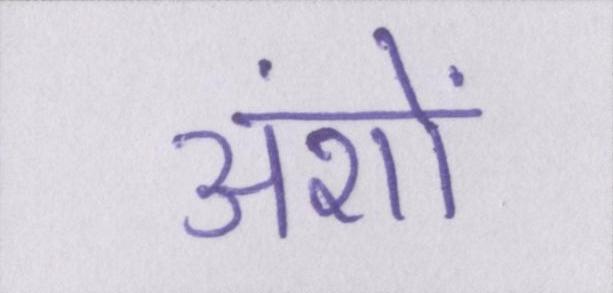 अंशों